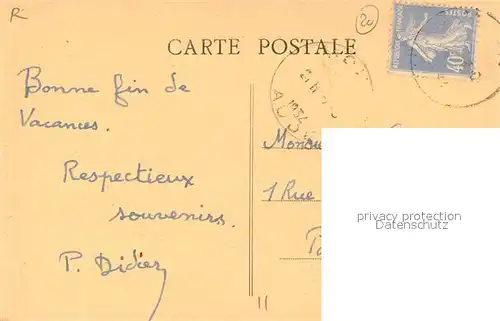 R
20
CARTE POSTALE
REPUBLIQUE FRANÇAISE
POSTES
40
1934
AUDE
Bonne fin de
Vacances.
Respectieux
souvenirs.
P. Didier
Monsieu
1 Rue
privacy protection
Datenschutz
11